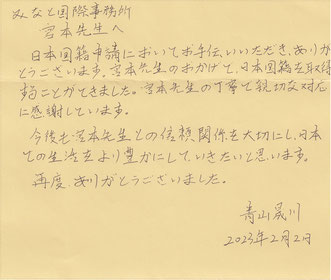 みなと国際事務所
宮本先生へ
日本国籍申請においてお手伝いいただき、ありが
とうございます。宮本先生のおかげで、日本国籍を取得
することができました。宮本先生の丁寧で親切な対応
に感謝しています。
今後も宮本先生との信頼関係を大切にし、日本
での生活をより豊かにしていきたいと思います。
再度、ありがとうございました。
青山晟川
2023年2月2日